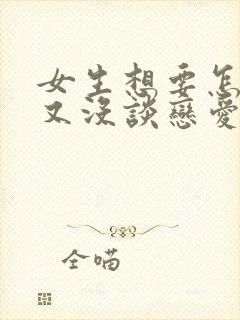 女生想要怎
又沒談戀愛
全喵